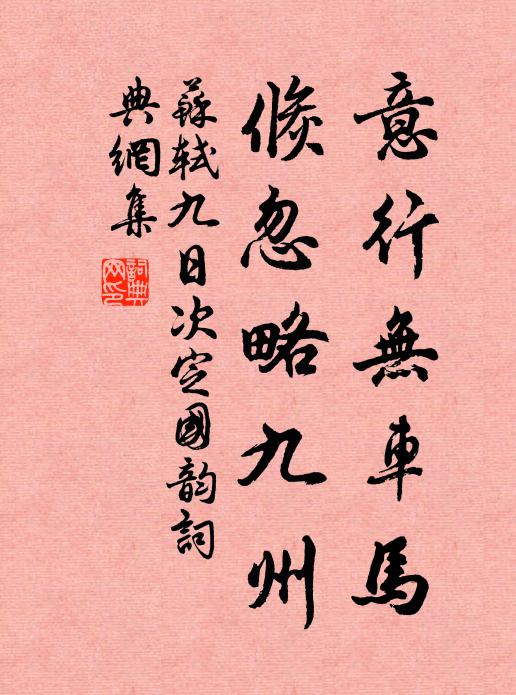 意行無車馬
倏忽略九州
蘇軾九日次定國韵詞
典網集
詞典
网印